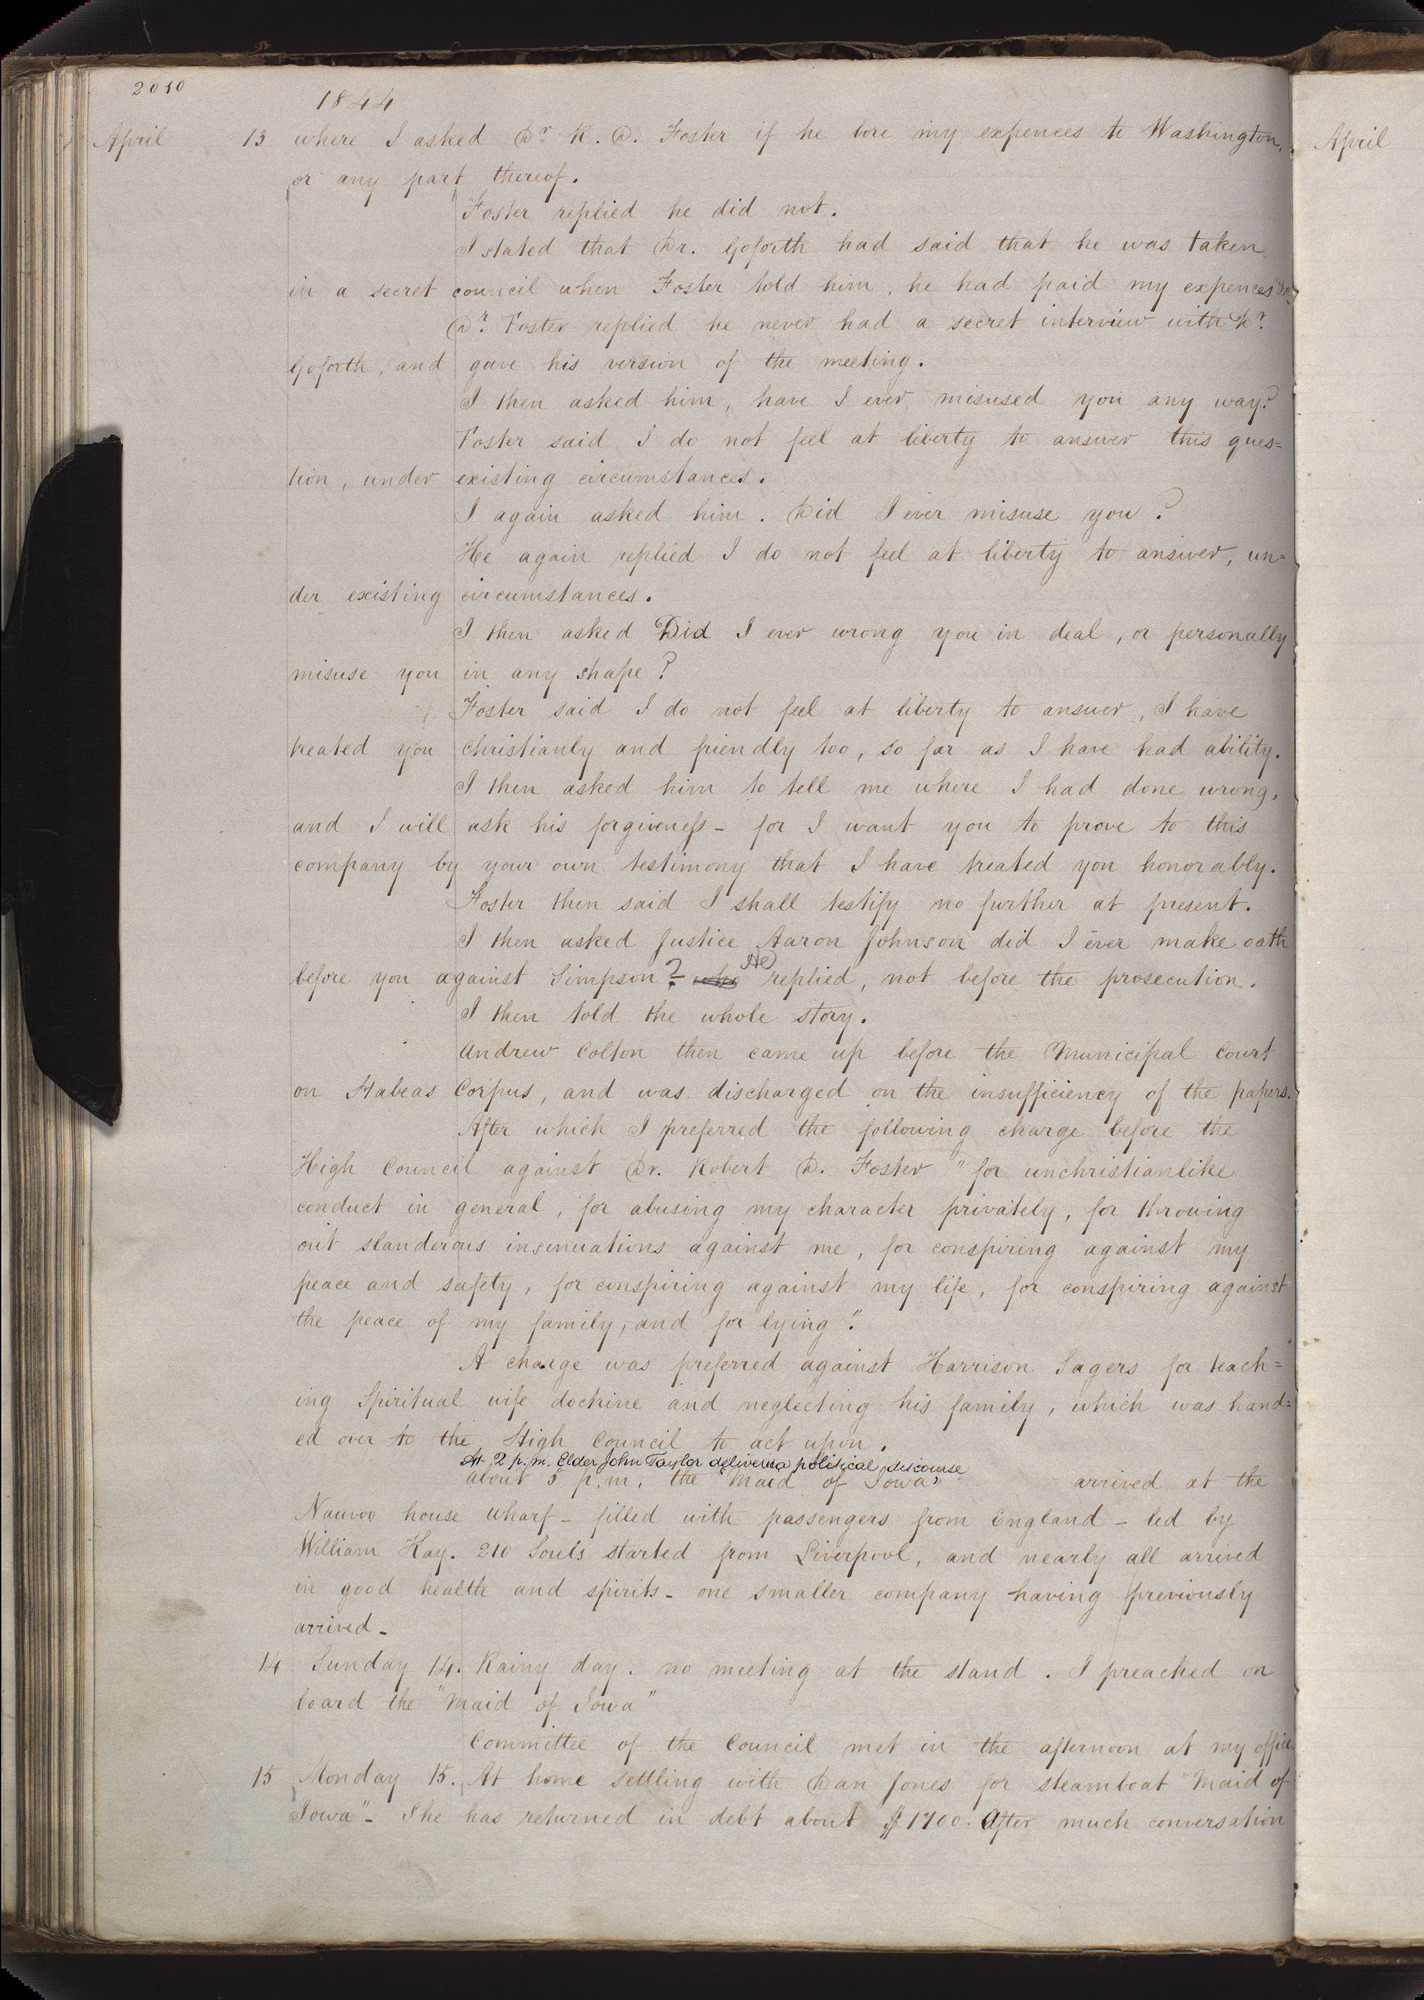 2010
1844
April 13 where I asked Dr. R. D. Foster if he bore my expences to Washington, April
or any part thereof.
Foster replied he did not.
I stated that Dr. Goforth had said that he was taken
in a secret council when Foster told him, he had paid my expences &c
Dr. Foster replied he never had a secret interview with Dr.
Goforth, and gave his version of the meeting.
I then asked him, have I ever misused you any way?
Foster said I do not feel at liberty to answer this ques=
tion, under existing circumstances.
I again asked him. Did I ever misuse you?
He again replied I do not feel at liberty to answer, un=
der existing circumstances.
I then asked Did I ever wrong you in deal, or personally
misuse you in any shape?
Foster said I do not feel at liberty to answer, I have
treated you christianly and friendly too, so far as I have had ability.
I then asked him to tell me where I had done wrong,
and I will ask his forgiveness - for I want you to prove to this
company by your own testimony that I have treated you honorably.
Foster then said I shall testify no further at present.
I then asked Justice Aaron Johnson did I ever make oath
before you against Simpson? who He replied, not before the prosecution.
I then told the whole story.
Andrew Colton then came up before the Municipal Court
on Habeas Corpus, and was discharged on the insufficiency of the papers.
After which I preferred the following charge before the
High Council against Dr. Robert D. Foster "for unchristianlike
conduct in general, for abusing my character privately, for throwing
out slanderous insinuations against me, for conspiring against my
peace and safety, for conspiring against my life, for conspiring against
the peace of my family, and for lying".
A charge was preferred against Harrison Sagers for teach=
ing Spiritual wife doctrine and neglecting his family, which was hand=
ed over to the High Council to act upon.
At 2 p.m. Elder John Taylor delivered a political discourse
about 5 p.m. the "Maid of Iowa" arrived at the
Nauvoo house wharf - filled with passengers from England - led by
William Kay. 210 Souls started from Liverpool, and nearly all arrived
in good health and spirits - one smaller company having previously
arrived -
14 Sunday 14. Rainy day. no meeting at the stand. I preached on
board the "Maid of Iowa"
Committee of the Council met in the afternoon at my office.
15 Monday 15. At home settling with Dan Jones for steamboat "Maid of
Iowa" - She has returned in debt about $1700. After much conversation